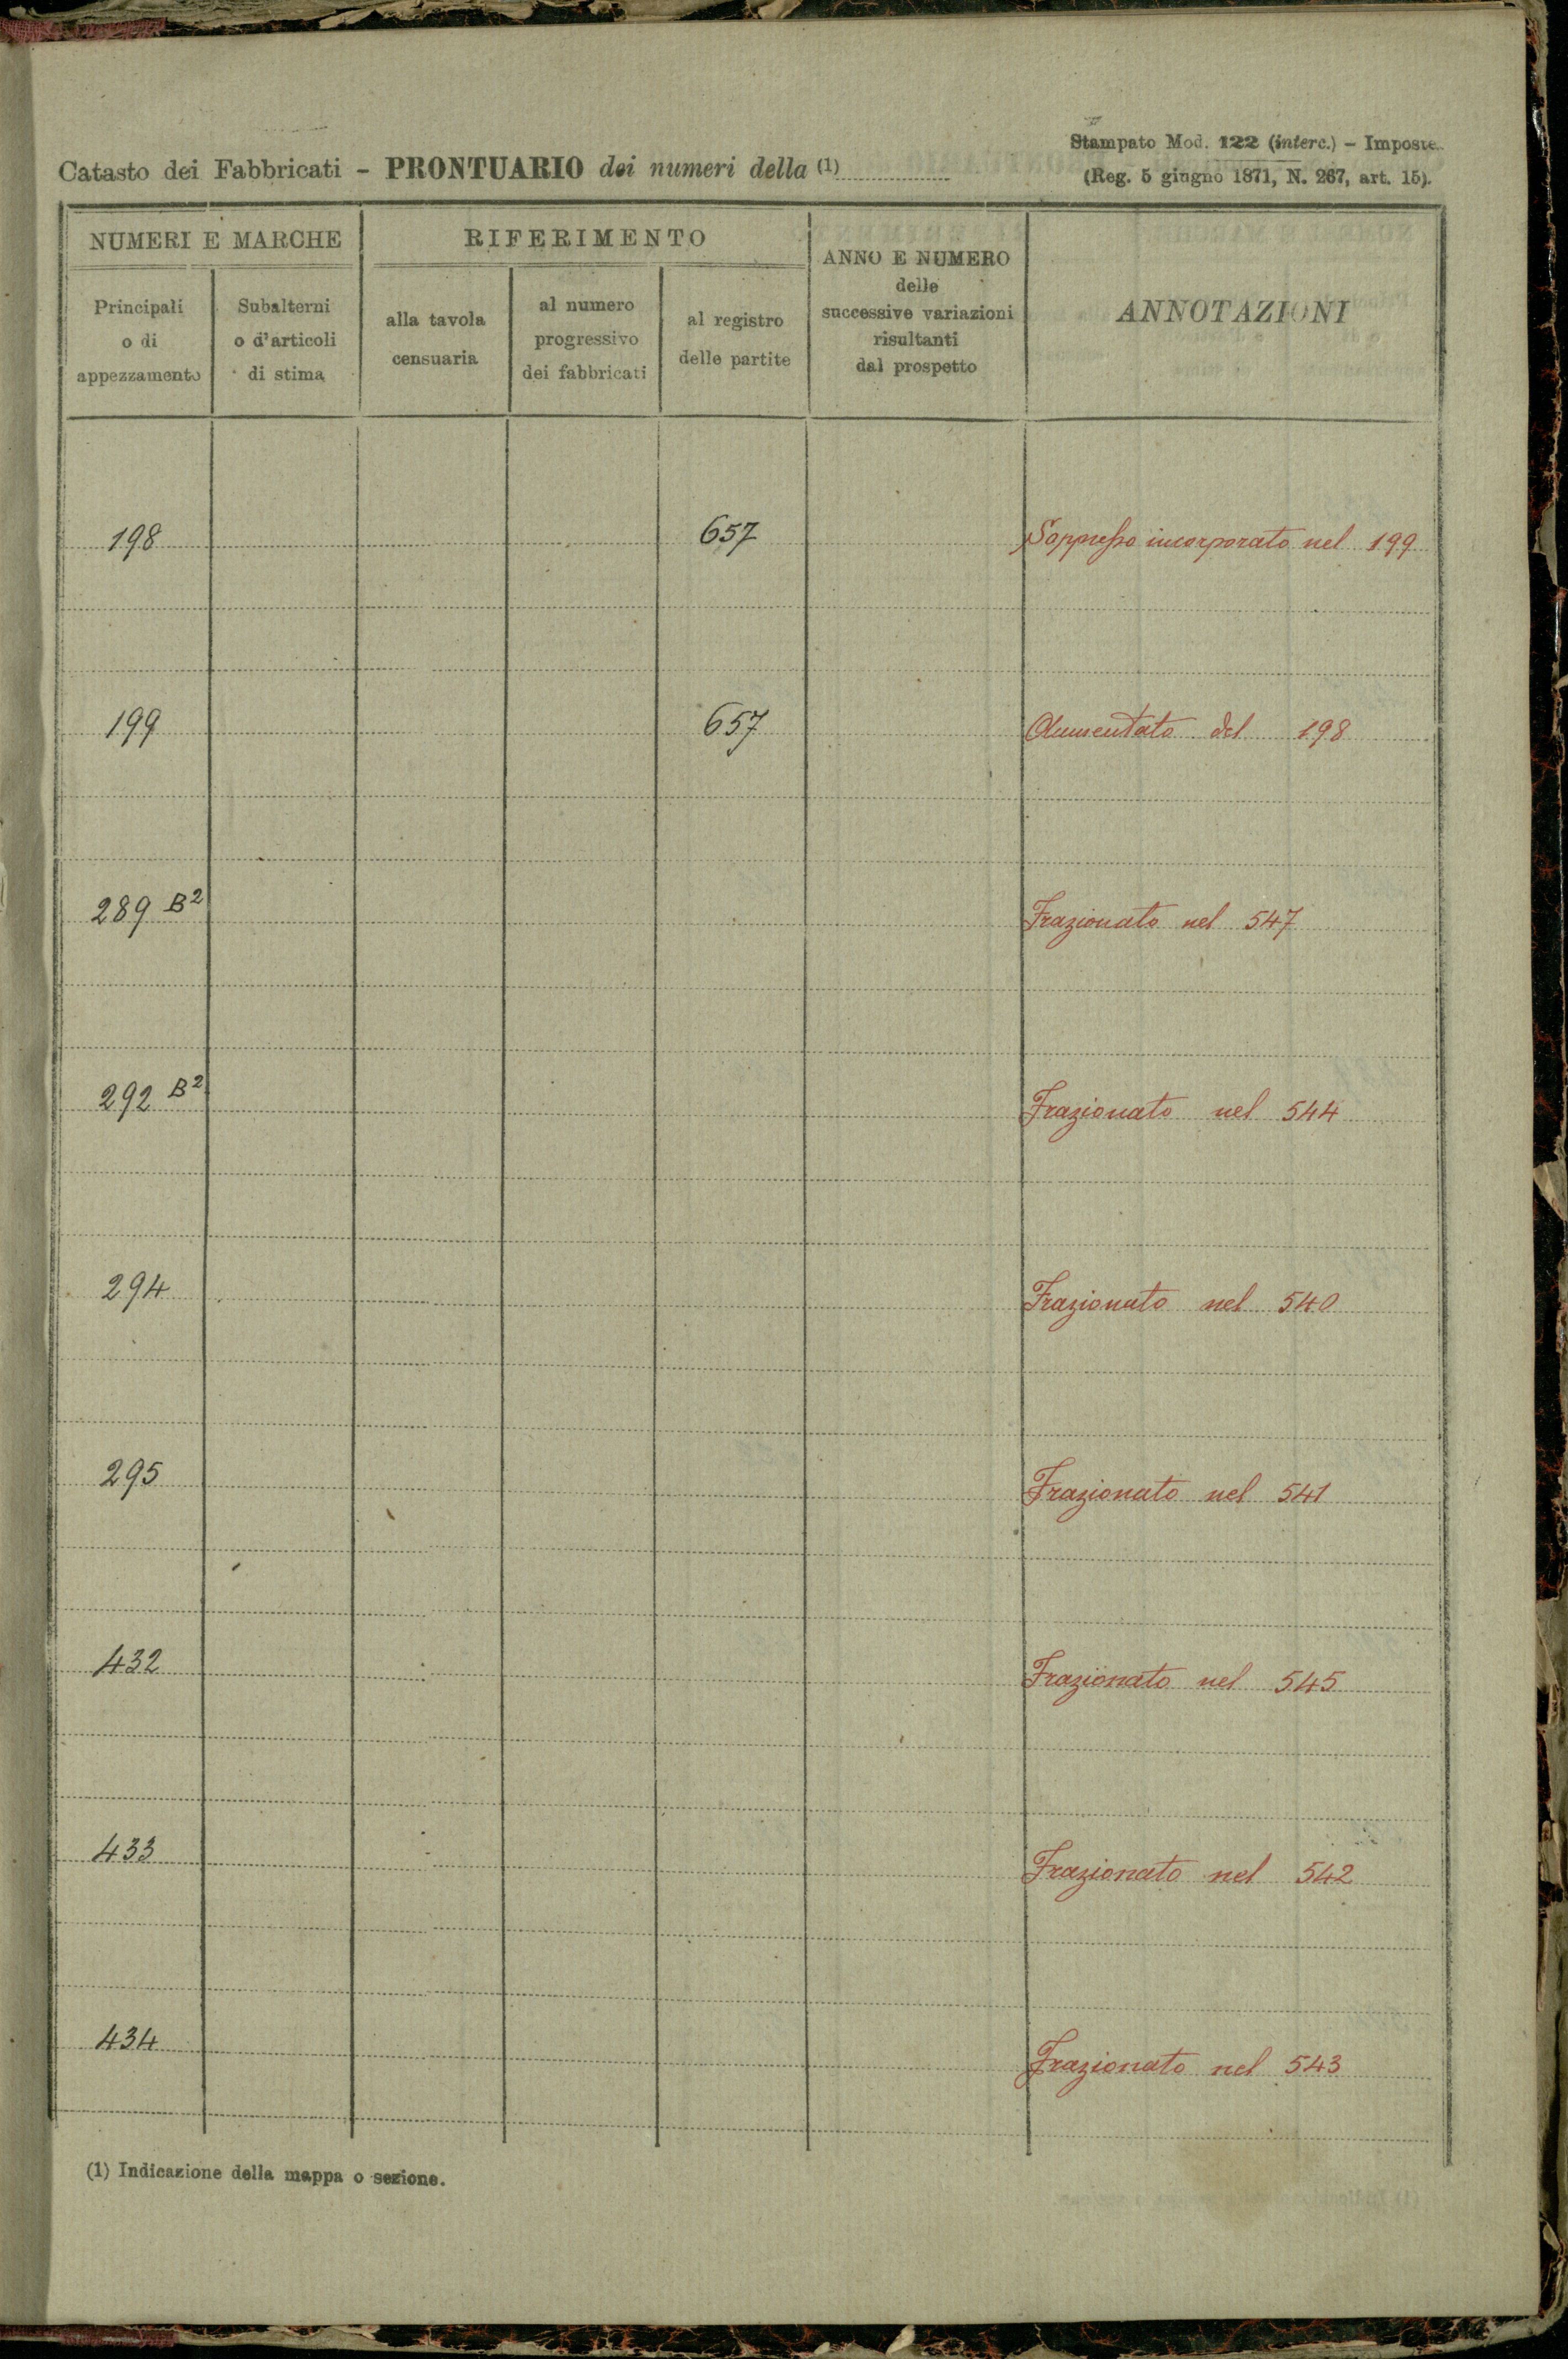 Stampato Mod. 122 (interc.) – Imposte.
Catasto dei Fabbricati – PRONTUARIO dei numeri della (1)
(Reg. 5 giugno 1871, N. 267, art. 15).
NUMERI E MARCHE
RIFERIMENTO
ANNO E NUMERO
delle
successive variazioni
risultanti
dal prospetto
ANNOTAZIONI
Principali
o di
appezzamento
Subalterni
o d'articoli
di stima
alla tavola
censuaria
al numero
progressivo
dei fabbricati
al registro
delle partite
198 657 Soppresso incorporato nel 199
199 657 Aumentato del 198
289 B² Frazionato nel 547
292 B² Frazionato nel 544
294 Frazionato nel 540
295 Frazionato nel 541
432 Frazionato nel 545
433 Frazionato nel 542
434 Frazionato nel 543
(1) Indicazione della mappa o sezione.